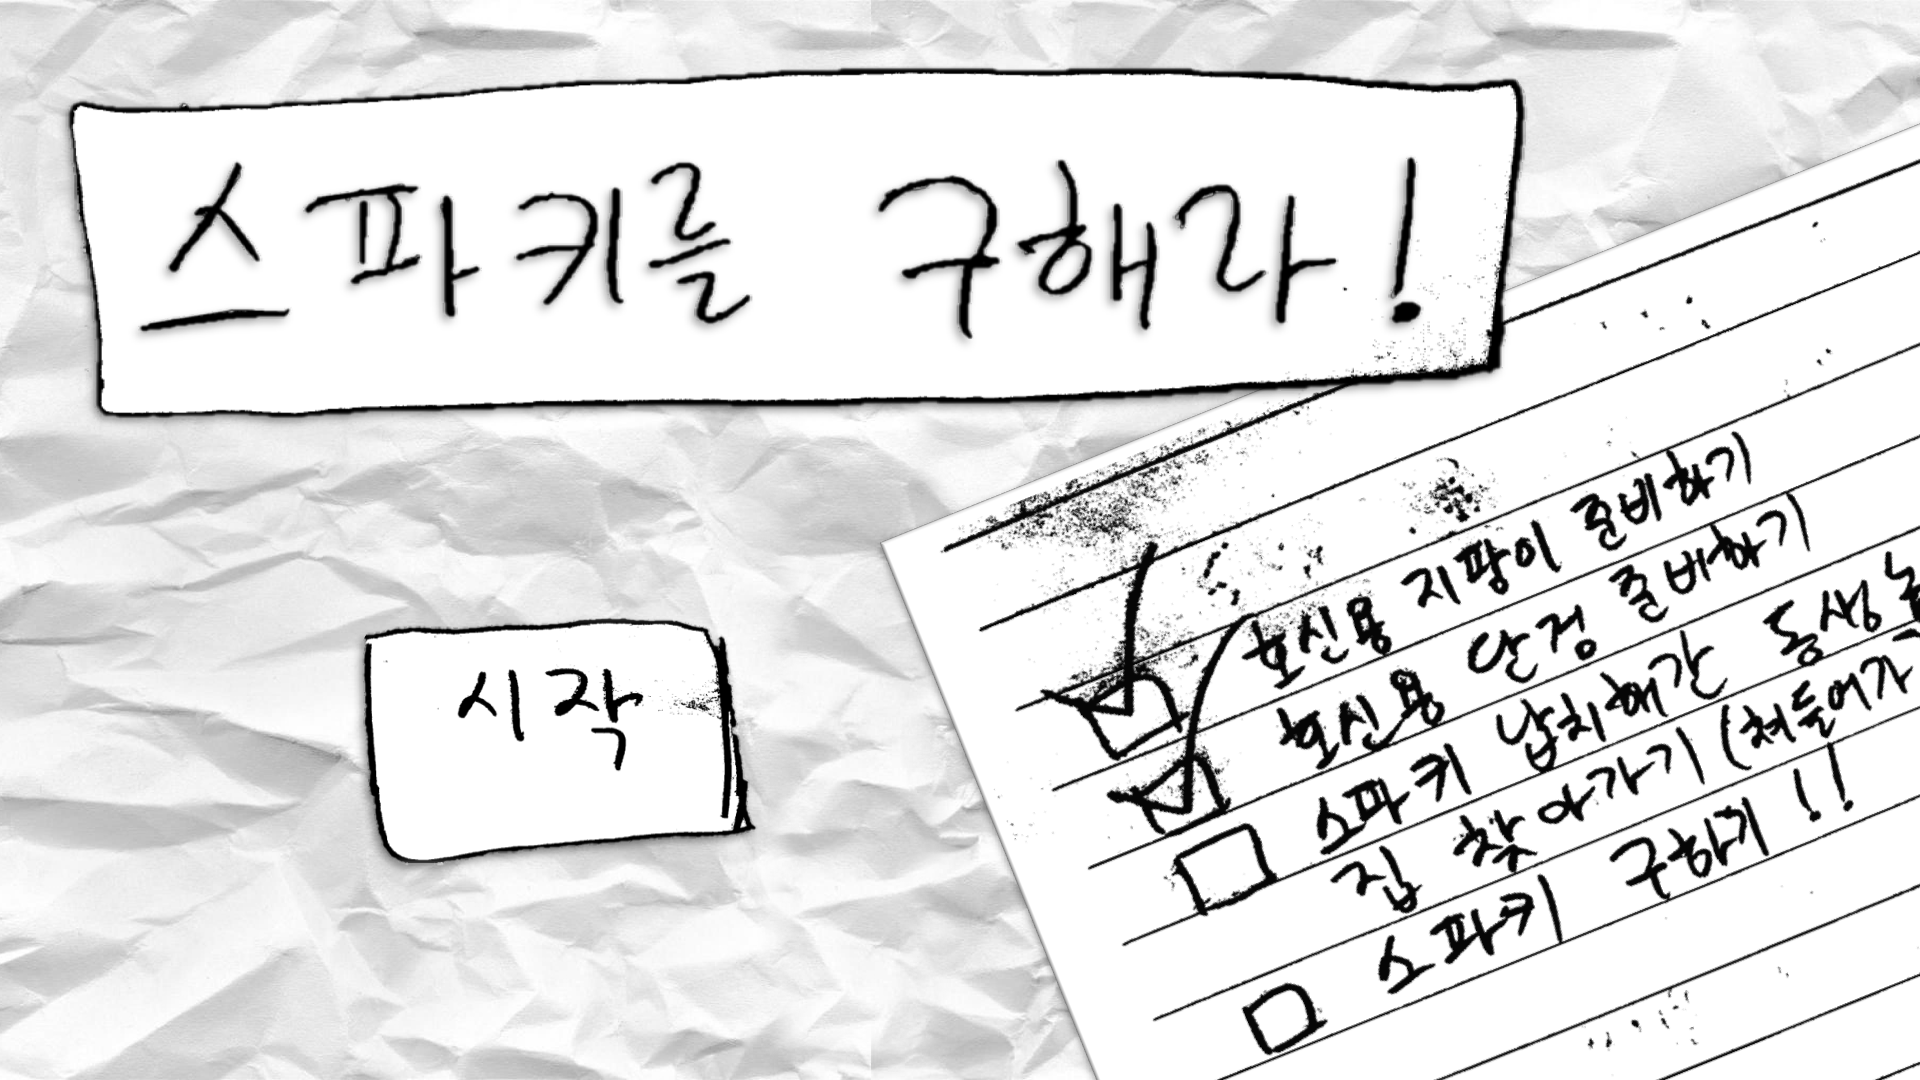 스파키를 구해라!
시작
호신용 지팡이 준비하기
호신용 단검 준비하기
스파키 납치해간 동생
집 찾아가기 (쳐들어가
스파키 구하기!!